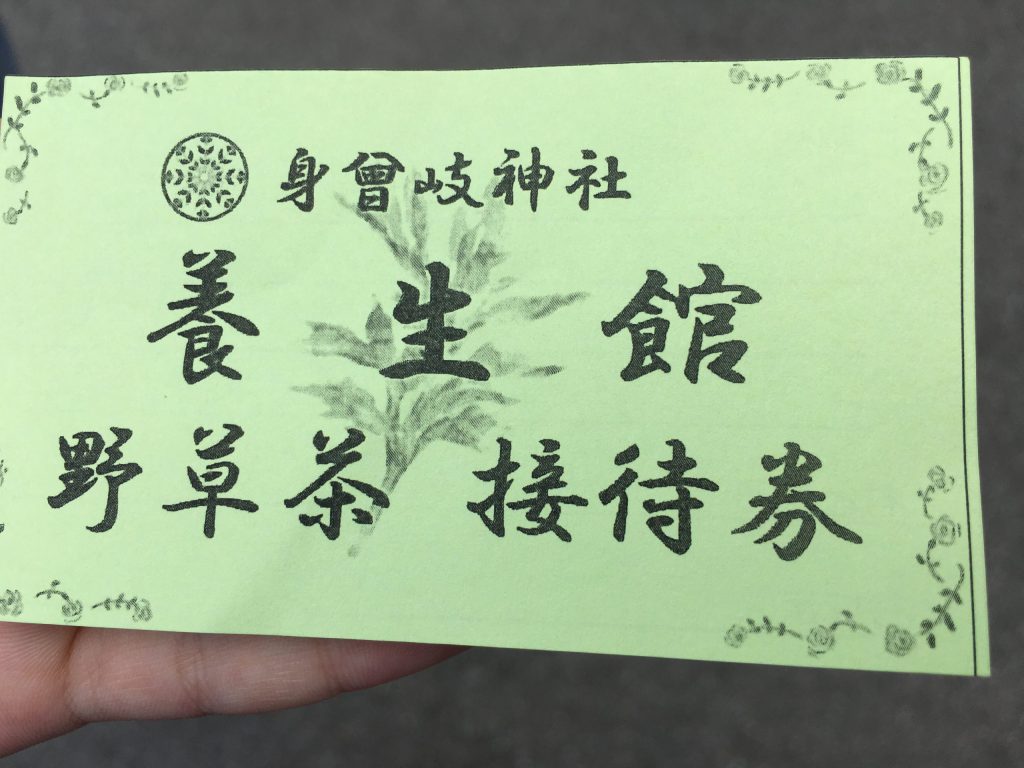 身曾岐神社
養生館
野草茶 接待券